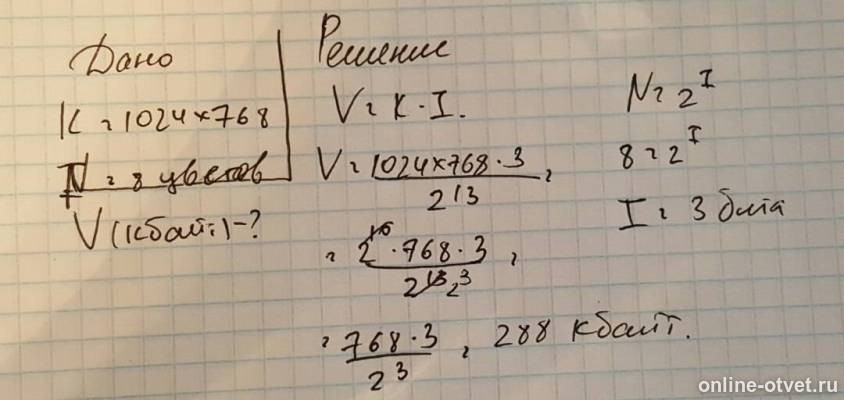 Дано
K = 1024×768
N = 8 цветов
V (кбайт) - ?
Решение
V = K · I.
V = 1024×768 · 3 / 2^13 =
= 2^10 · 768 · 3 / 2^13 2^3 =
= 768 · 3 / 2^3 = 288 кбайт.
N = 2^I
8 = 2^I
I = 3 бита
online-otvet.ru